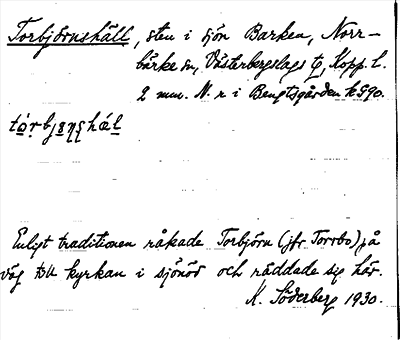 Torbjörnshäll, sten i sjön Barken, Norr-
bärke sn, Västerbergslags tg, Kopp. l.
2 mm. N. r i Bengtsgården kS90.
tórbjȩṇṣhál
Enligt traditionen råkade Torbjörn (jfr Torrbo) på
väg till kyrkan i sjönöd och räddade sig här.
K. Söderberg 1930.